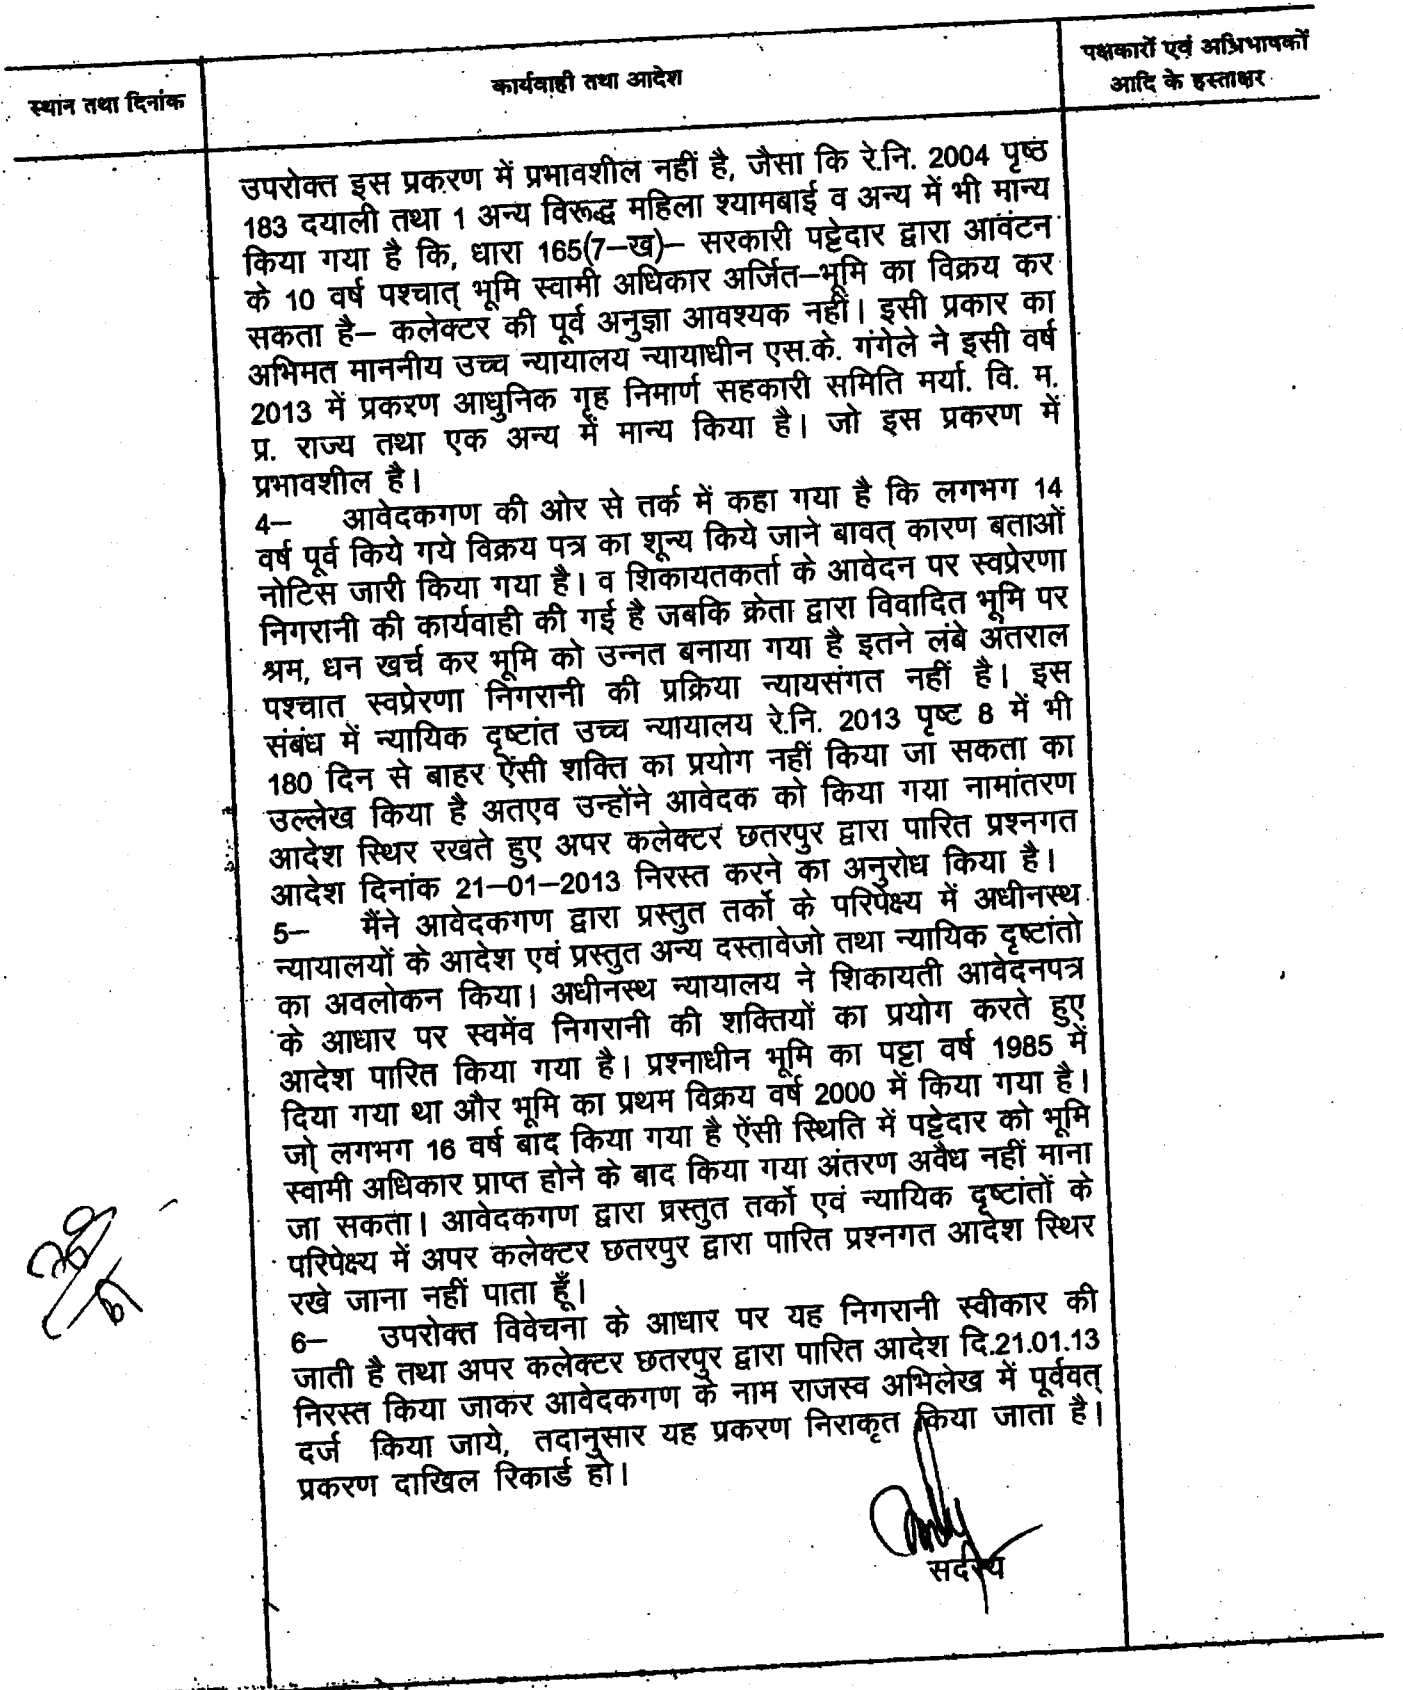 स्थान तथा दिनांक
कार्यवाही तथा आदेश
पक्षकारों एवं अभिभाषकों
आदि के हस्ताक्षर
उपरोक्त इस प्रकरण में प्रभावशील नहीं है, जैसा कि रे.नि. 2004 पृष्ठ
183 दयाली तथा 1 अन्य विरूद्ध महिला श्यामबाई व अन्य में भी मान्य
किया गया है कि, धारा 165(7–ख)– सरकारी पट्टेदार द्वारा आवंटन
के 10 वर्ष पश्चात् भूमि स्वामी अधिकार अर्जित–भूमि का विक्रय कर
सकता है– कलेक्टर की पूर्व अनुज्ञा आवश्यक नहीं। इसी प्रकार का
अभिमत माननीय उच्च न्यायालय न्यायाधीन एस.के. गंगेले ने इसी वर्ष
2013 में प्रकरण आधुनिक गृह निमार्ण सहकारी समिति मर्या. वि. म.
प्र. राज्य तथा एक अन्य में मान्य किया है। जो इस प्रकरण में
प्रभावशील है।
4– आवेदकगण की ओर से तर्क में कहा गया है कि लगभग 14
वर्ष पूर्व किये गये विक्रय पत्र का शून्य किये जाने बावत् कारण बताओं
नोटिस जारी किया गया है। व शिकायतकर्ता के आवेदन पर स्वप्रेरणा
निगरानी की कार्यवाही की गई है जबकि क्रेता द्वारा विवादित भूमि पर
श्रम, धन खर्च कर भूमि को उन्नत बनाया गया है इतने लंबे अंतराल
पश्चात स्वप्रेरणा निगरानी की प्रक्रिया न्यायसंगत नहीं है। इस
संबंध में न्यायिक दृष्टांत उच्च न्यायालय रे.नि. 2013 पृष्ट 8 में भी
180 दिन से बाहर ऐंसी शक्ति का प्रयोग नहीं किया जा सकता का
उल्लेख किया है अतएव उन्होंने आवेदक को किया गया नामांतरण
आदेश स्थिर रखते हुए अपर कलेक्टर छतरपुर द्वारा पारित प्रश्नगत
आदेश दिनांक 21–01–2013 निरस्त करने का अनुरोध किया है।
5– मैंने आवेदकगण द्वारा प्रस्तुत तर्को के परिपेक्ष्य में अधीनस्थ
न्यायालयों के आदेश एवं प्रस्तुत अन्य दस्तावेजो तथा न्यायिक दृष्टांतो
का अवलोकन किया। अधीनस्थ न्यायालय ने शिकायती आवेदनपत्र
के आधार पर स्वमेंव निगरानी की शक्तियों का प्रयोग करते हुए
आदेश पारित किया गया है। प्रश्नाधीन भूमि का पट्टा वर्ष 1985 में
दिया गया था और भूमि का प्रथम विक्रय वर्ष 2000 में किया गया है।
जो लगभग 16 वर्ष बाद किया गया है ऐंसी स्थिति में पट्टेदार को भूमि
स्वामी अधिकार प्राप्त होने के बाद किया गया अंतरण अवैध नहीं माना
जा सकता। आवेदकगण द्वारा प्रस्तुत तर्को एवं न्यायिक दृष्टांतों के
परिपेक्ष्य में अपर कलेक्टर छतरपुर द्वारा पारित प्रश्नगत आदेश स्थिर
रखे जाना नहीं पाता हूँ।
6– उपरोक्त विवेचना के आधार पर यह निगरानी स्वीकार की
जाती है तथा अपर कलेक्टर छतरपुर द्वारा पारित आदेश दि.21.01.13
निरस्त किया जाकर आवेदकगण के नाम राजस्व अभिलेख में पूर्ववत्
दर्ज किया जाये, तदानुसार यह प्रकरण निराकृत किया जाता है।
प्रकरण दाखिल रिकार्ड हो।
सदस्य